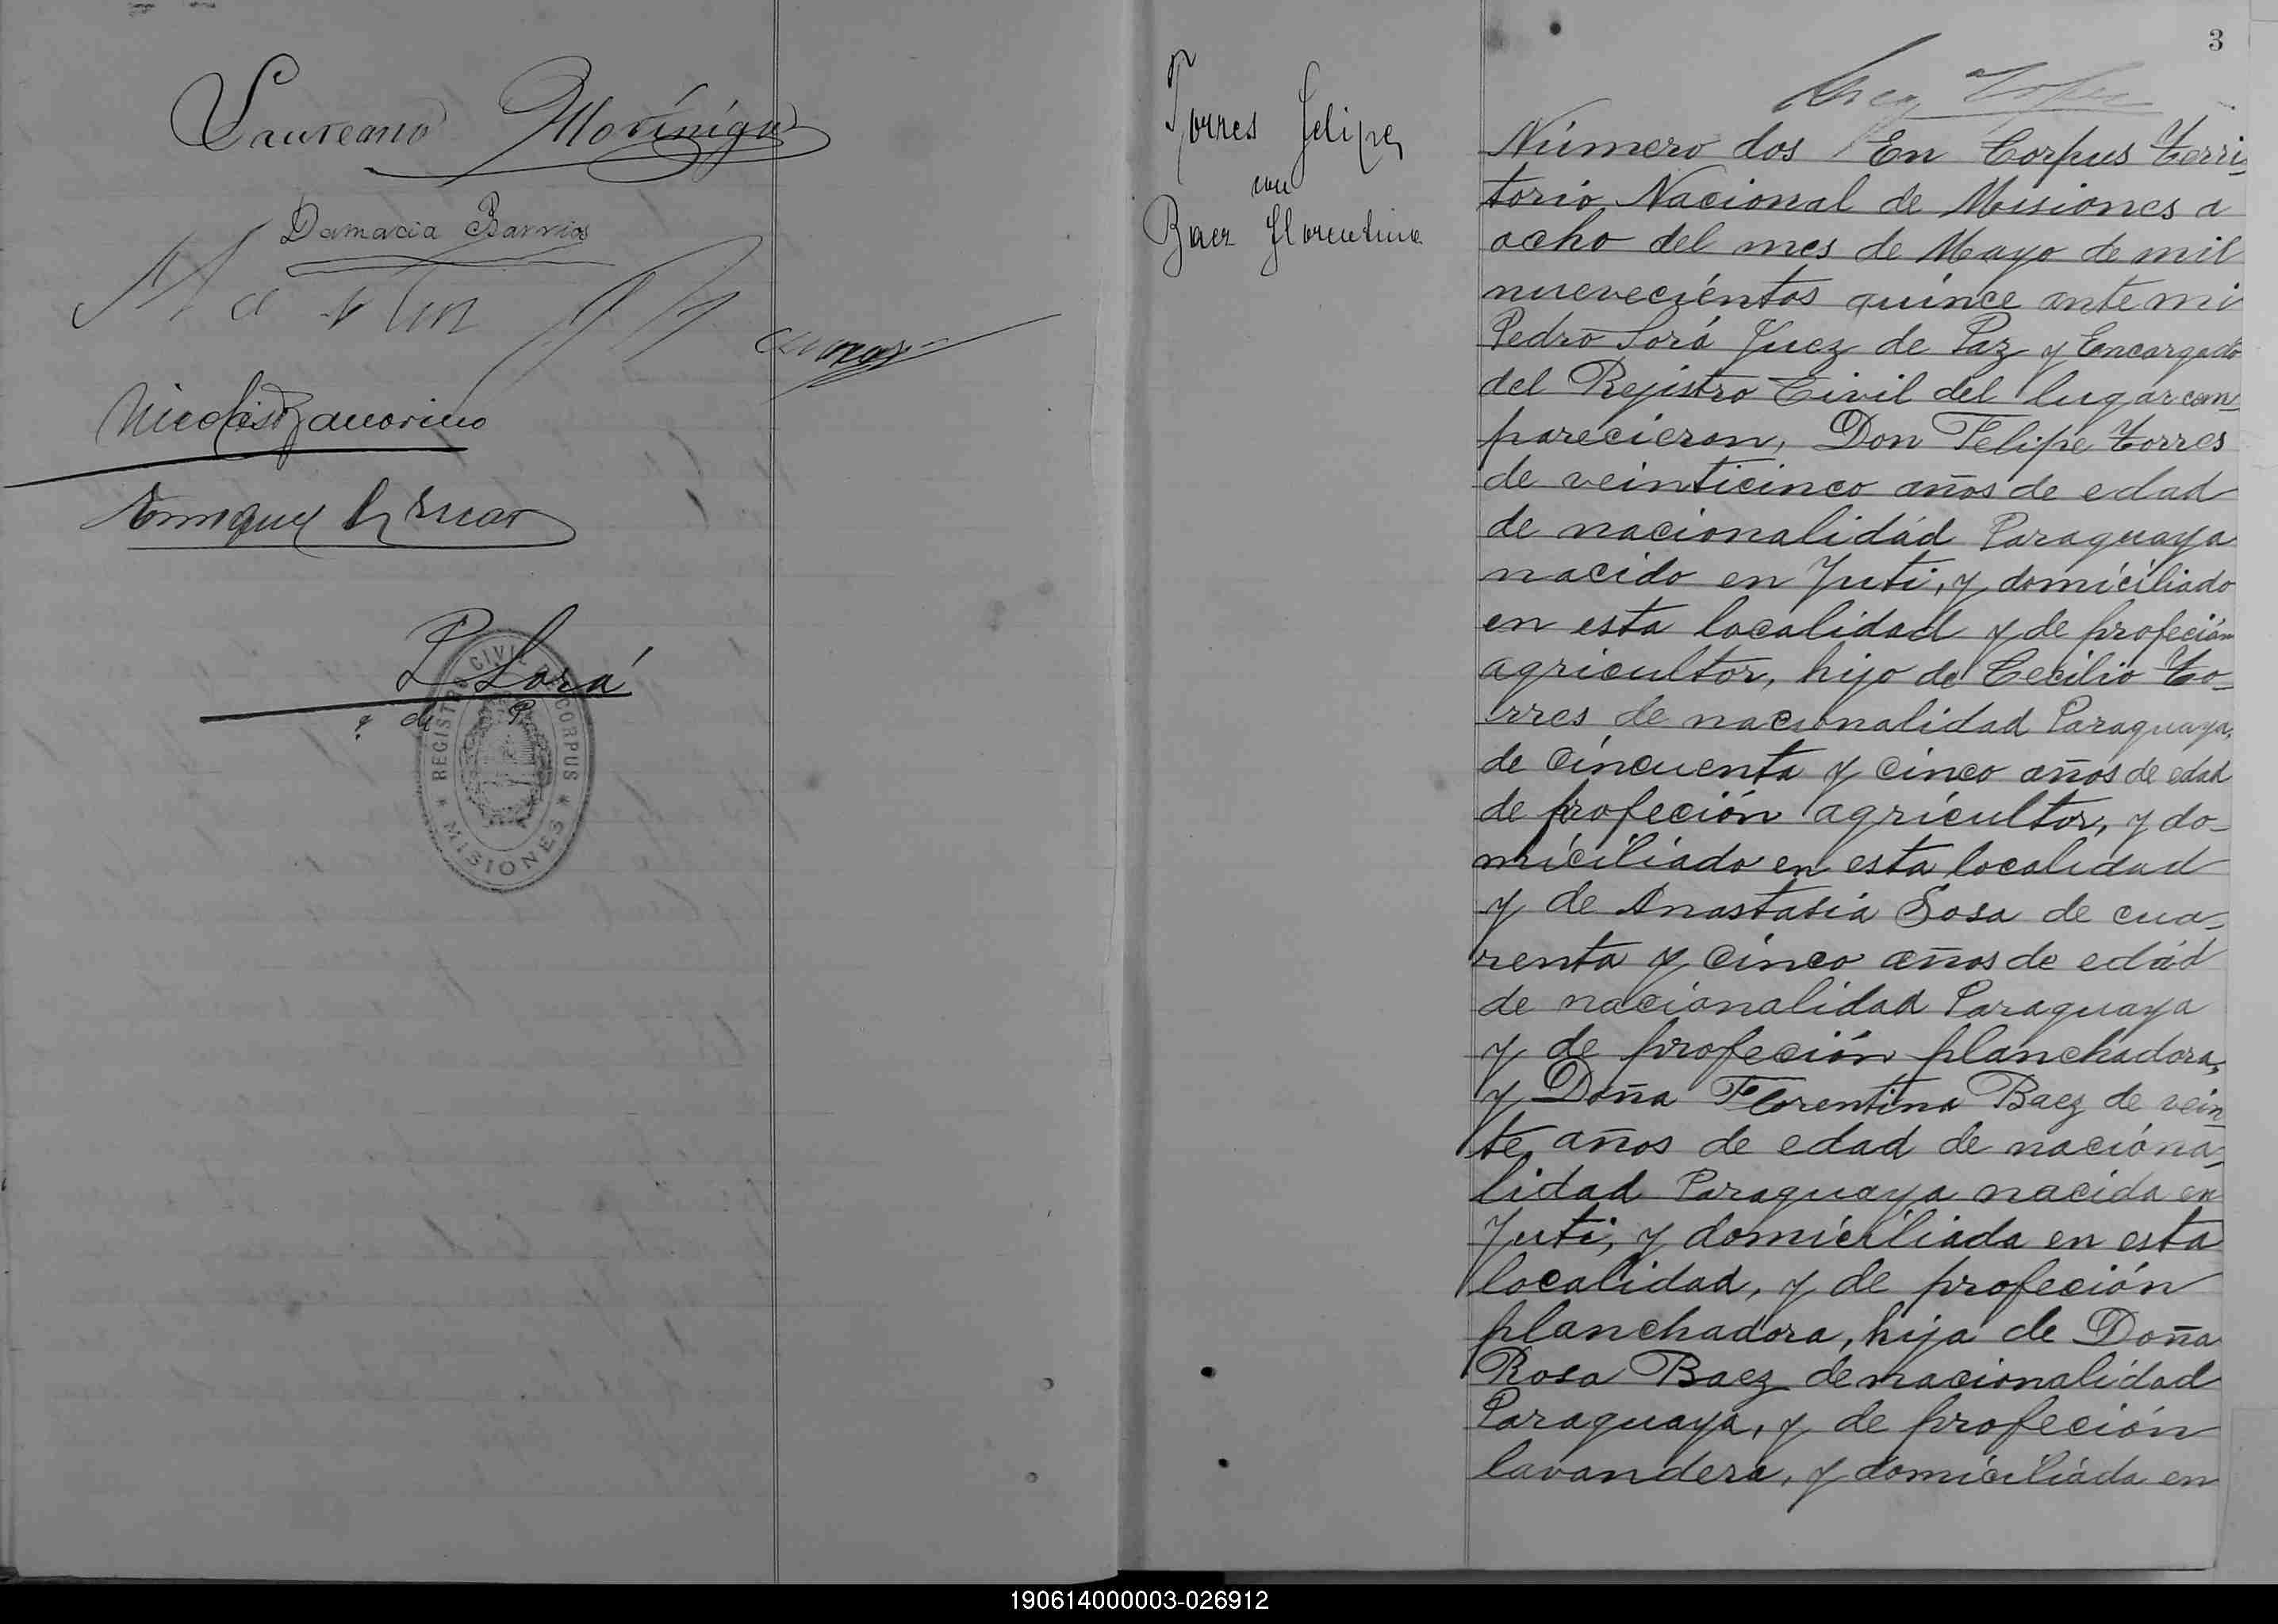 Laureano Morínigo
Damacia Barrios
Martin
P Sorá
J de P
REGISTRO CIVIL DE CORPUS
* MISIONES *
Torres Felipe
con
Baez Florentina
3
Número dos En Corpus Terri-
torio Nacional de Misiones a
ocho del mes de Mayo de mil
nuevecientos quince ante mi
Pedro Sorá Juez de Paz y Encargado
del Rejistro Civil del lugar com-
parecieron, Don Felipe Torres
de veinticinco años de edad
de nacionalidád Paraguaya
nacido en Yuti, y domiciliado
en esta localidad y de profeción
agricultor, hijo de Cecilio To-
rres de nacionalidad Paraguaya,
de cincuenta y cinco años de edad
de profeción agrícultor, y do-
miciliado en esta localidad
y de Anastasia Sosa de cua-
renta y cinco años de edád
de nacionalidad Paraguaya
y de profeción planchadora,
y Doña Florentina Baez de vein
te años de edad de nacióna-
lidad Paraguaya nacida en
Yuti, y domiciliada en esta
localidad, y de profeción
planchadora, hija de Doña
Rosa Baez de nacionalidad
Paraguaya, y de profeción
lavandera, y domiciliáda en
190614000003-026912